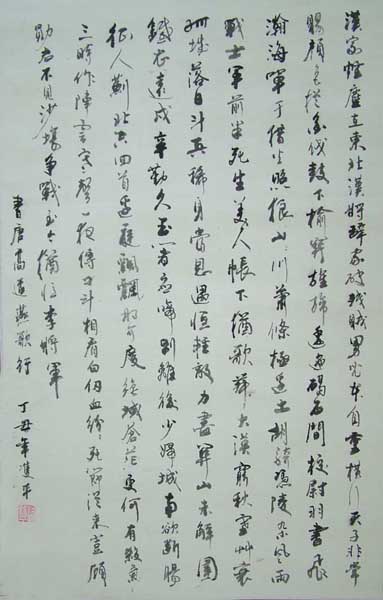 漢家煙塵在東北漢將辭家破殘賊男兒本自重橫行天子非常
賜顏色摐金伐鼓下榆關旌旆逶迤碣石間校尉羽書飛
瀚海單于獵火照狼山山川蕭條極邊土胡騎憑陵雜風雨
戰士軍前半死生美人帳下猶歌舞大漠窮秋塞艸衰
孤城落日斗兵稀身當恩遇恒輕敵力盡關山未解圍
鐵衣遠戍辛勤久玉箸應啼別離後少婦城南欲斷腸
征人薊北空回首邊庭飄飄那可度絕域蒼茫更何有殺氣
三時作陣雲寒聲一夜傳刁斗相看白刃血紛紛死節從來豈顧
勛君不見沙場爭戰苦至今猶憶李將軍
書唐高適燕歌行
丁丑年